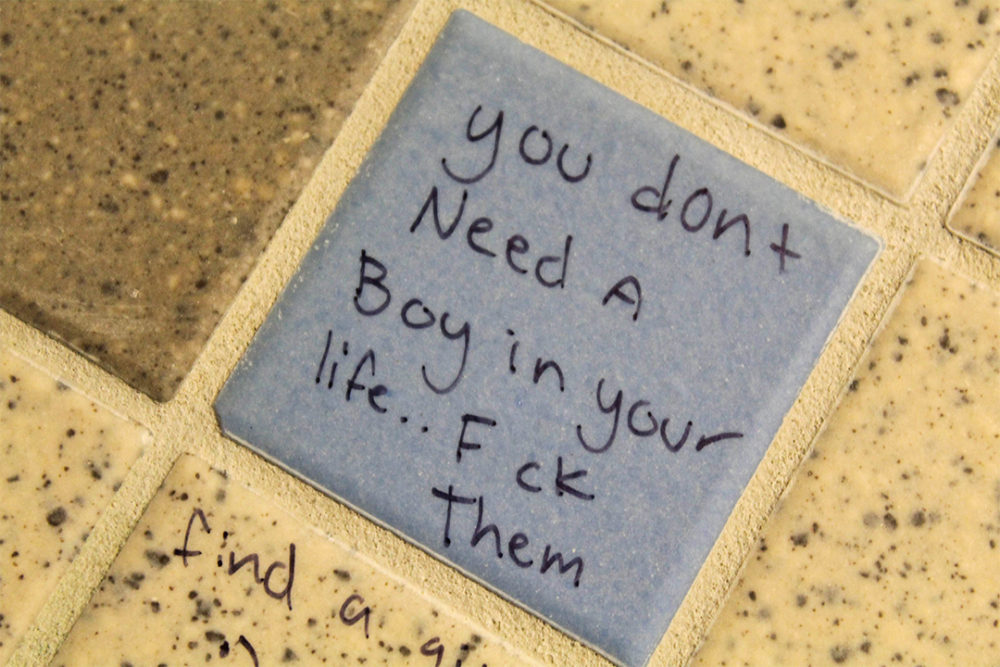 you dont
Need A
Boy in your
life.. F ck
Them
find a